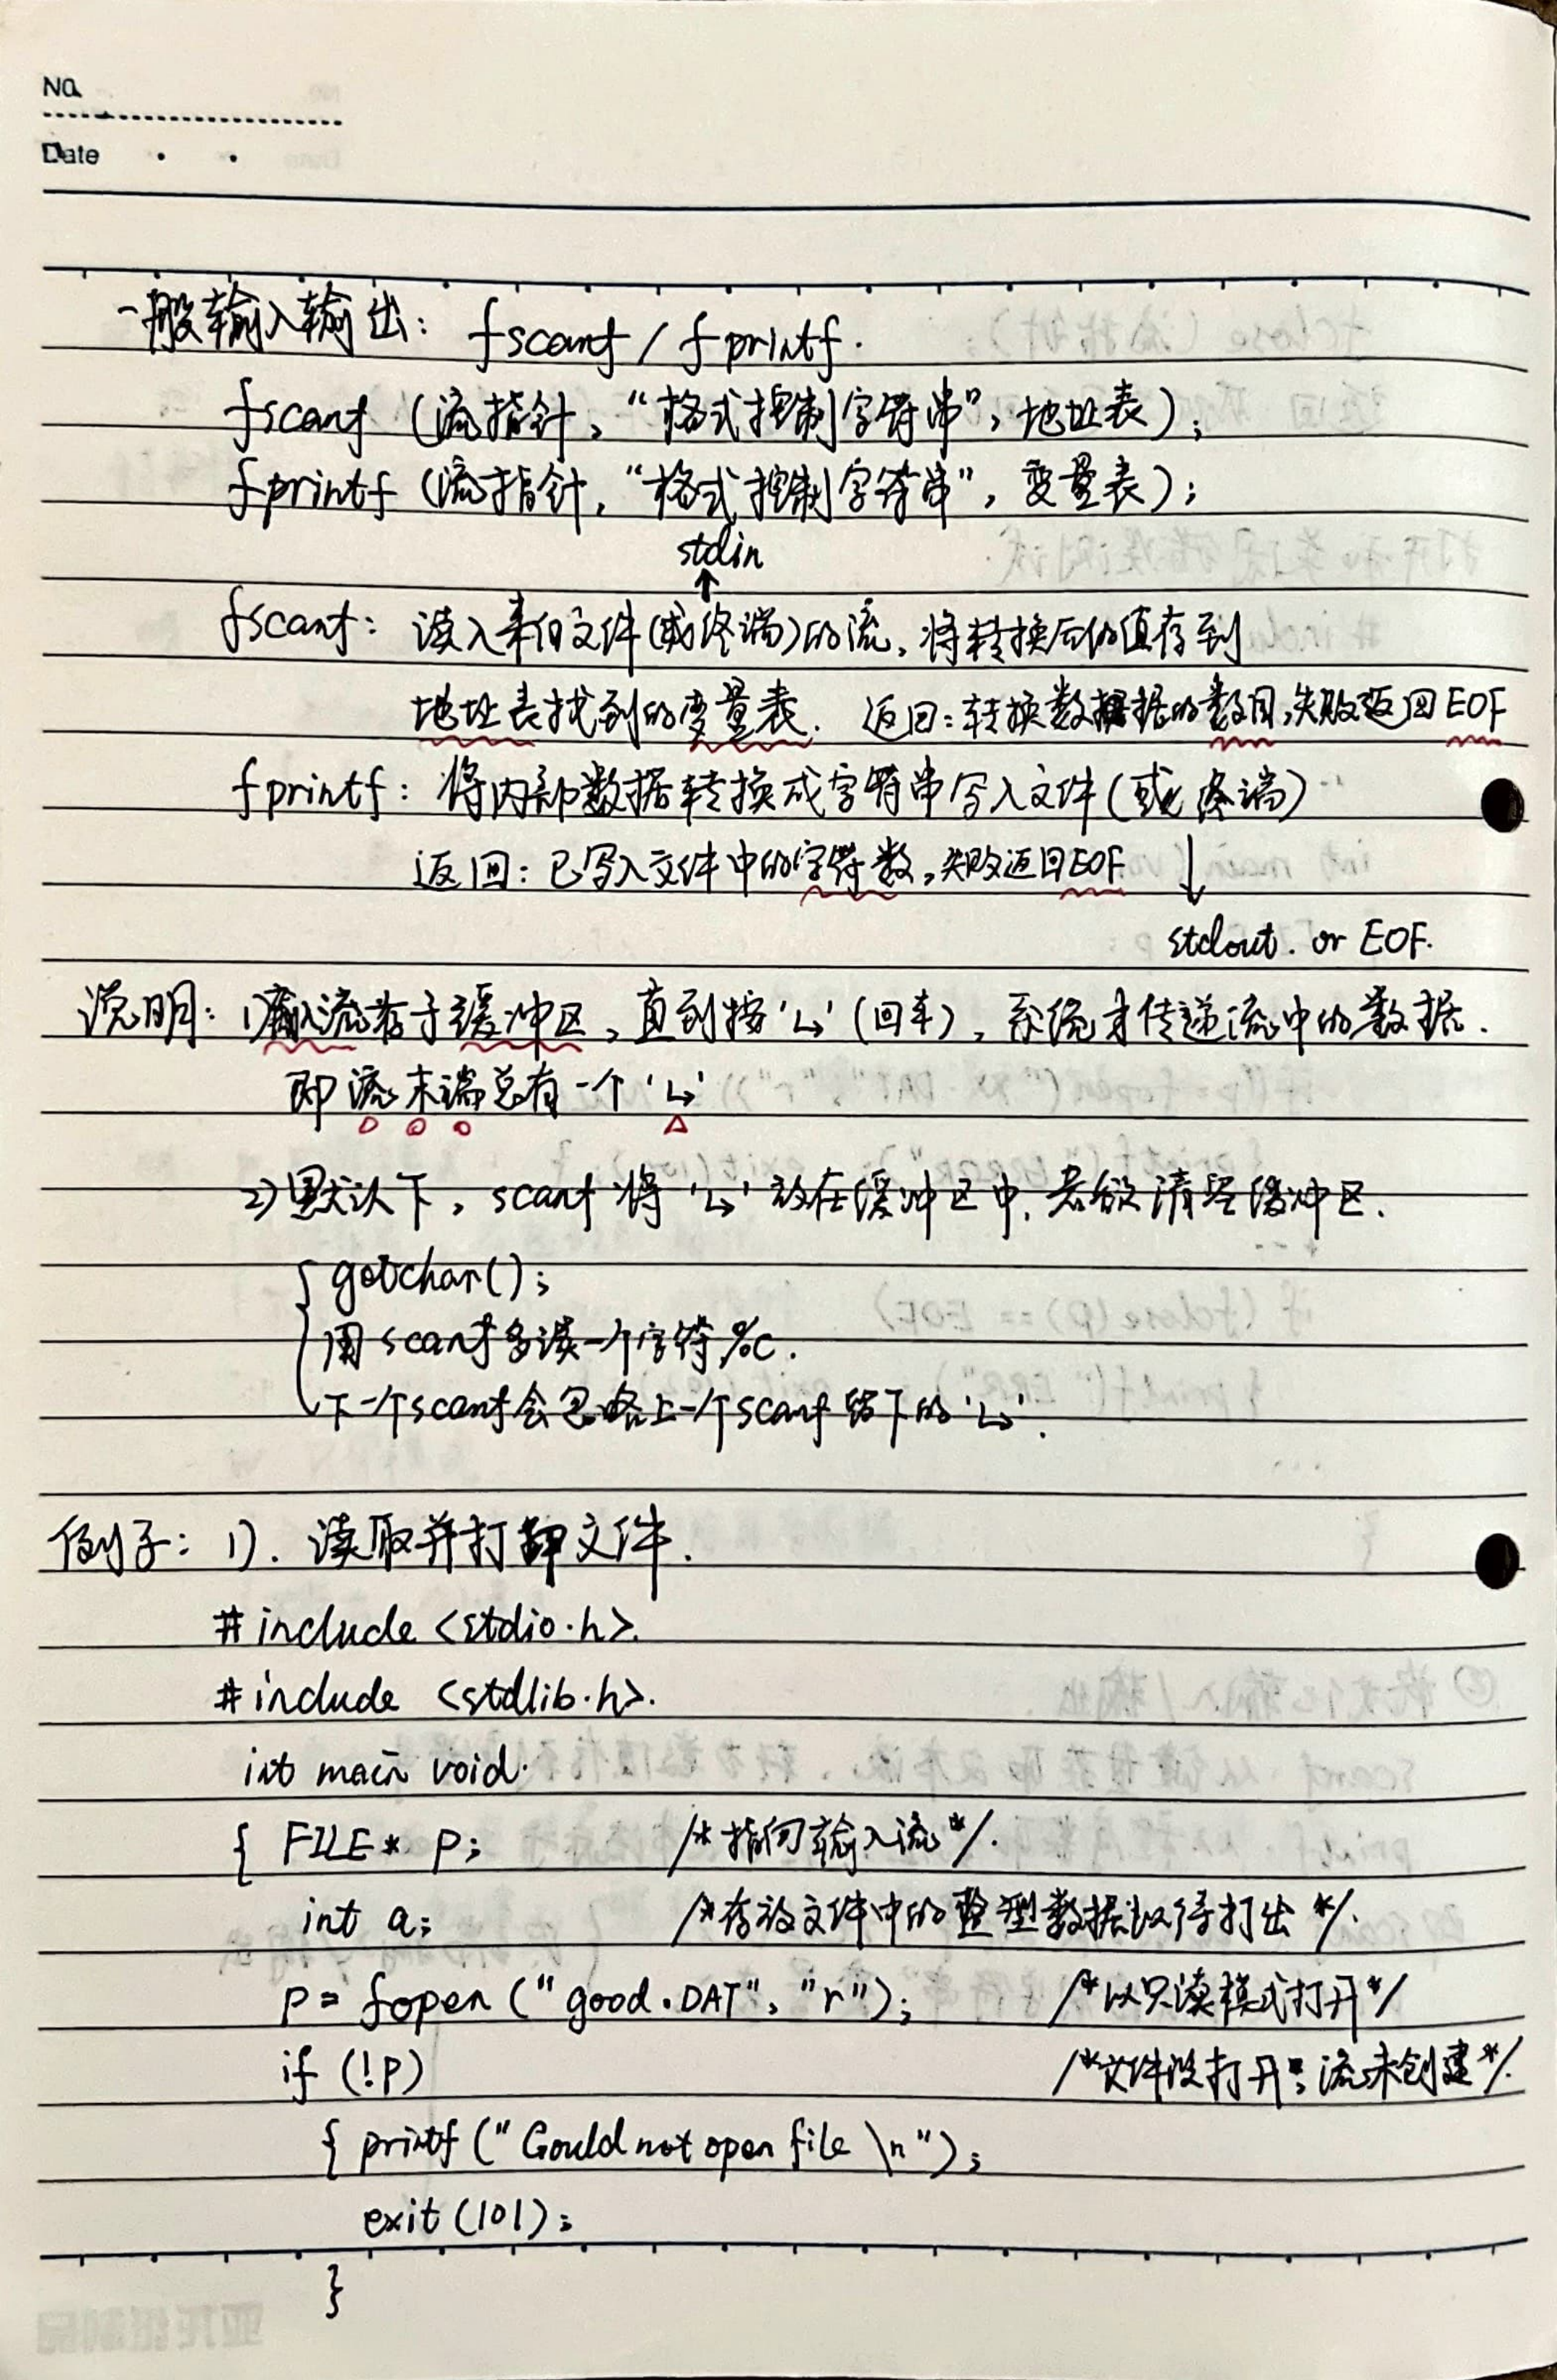 No.
Date
一般输入输出: fscanf / fprintf.
fscanf (流指针, “格式控制字符串”, 地址表);
fprintf (流指针, “格式控制字符串”, 变量表);
stdin
↑
fscanf: 读入来自文件(或终端)的流, 将转换后的值存到
地址表找到的变量表. 返回: 转换数据的数目, 失败返回 EOF
fprintf: 将内部数据转换成字符串写入文件(或终端)
返回: 已写入文件中的字符数, 失败返回EOF ↓
stdout. or EOF.
说明: 1) 输入流存于缓冲区, 直到按‘↳’(回车), 系统才传递流中的数据.
即流末端总有一个‘↳’
2) 默认下, scanf 将‘↳’放在缓冲区中, 若欲清空缓冲区.
{ getchar();
用scanf多读一个字符%c.
下一个scanf会忽略上一个scanf留下的‘↳’.
例子: 1). 读取并打印文件.
#include <stdio.h>.
#include <stdlib.h>.
int main void.
{ FILE* p; /*指向输入流*/.
int a; /*存放文件中的整型数据以待打出*/.
p = fopen ("good.DAT", "r"); /*以只读模式打开*/
if (!p) /*文件没打开; 流未创建*/.
{ printf ("Could not open file \n");
exit (101);
}